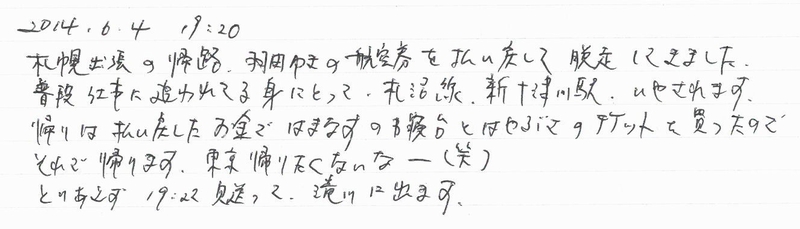 2014.6.4 19:20
札幌出張の帰路、羽田ゆきの航空券を払い戻して脱走してきました。
普段仕事に追われてる身にとって、札沼線、新十津川駅、いやされます。
帰りは払い戻したお金ではまなすのB寝台とはやぶさのチケットを買ったので
それで帰ります。東京帰りたくないなー(笑)
とりあえず 19:22 見送って、滝川に出ます。